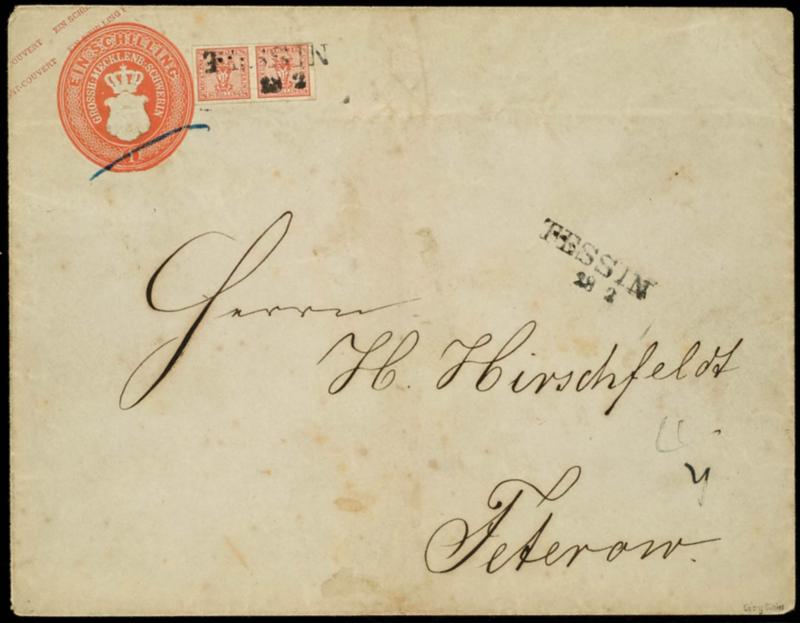 COUVERT EIN SCHI
T-COUVERT EIN SCHILLING
EIN SCHILLING
GROSSH. MECKLENB. SCHWERIN
1
TESSIN
28 2
TESSIN
28 2
Herrn
H. Hirschfeldt
Teterow.